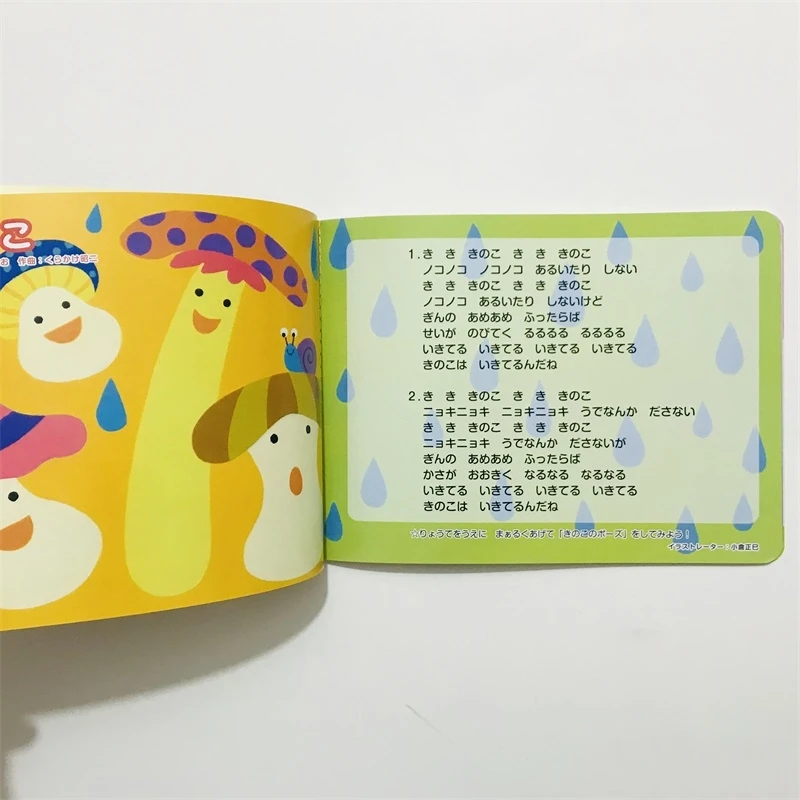 こ
お 作曲：くらかけ昭二
1.き き きのこ き き きのこ
ノコノコ ノコノコ あるいたり しない
き き きのこ き き きのこ
ノコノコ あるいたり しないけど
ぎんの あめあめ ふったらば
せいが のびてく るるるる るるるる
いきてる いきてる いきてる いきてる
きのこは いきてるんだね
2.き き きのこ き き きのこ
ニョキニョキ ニョキニョキ うでなんか ださない
き き きのこ き き きのこ
ニョキニョキ うでなんか ださないが
ぎんの あめあめ ふったらば
かさが おおきく なるなる なるなる
いきてる いきてる いきてる いきてる
きのこは いきてるんだね
☆りょうてをうえに まぁるくあげて「きのこのポーズ」をしてみよう！
イラストレーター：小倉正巳